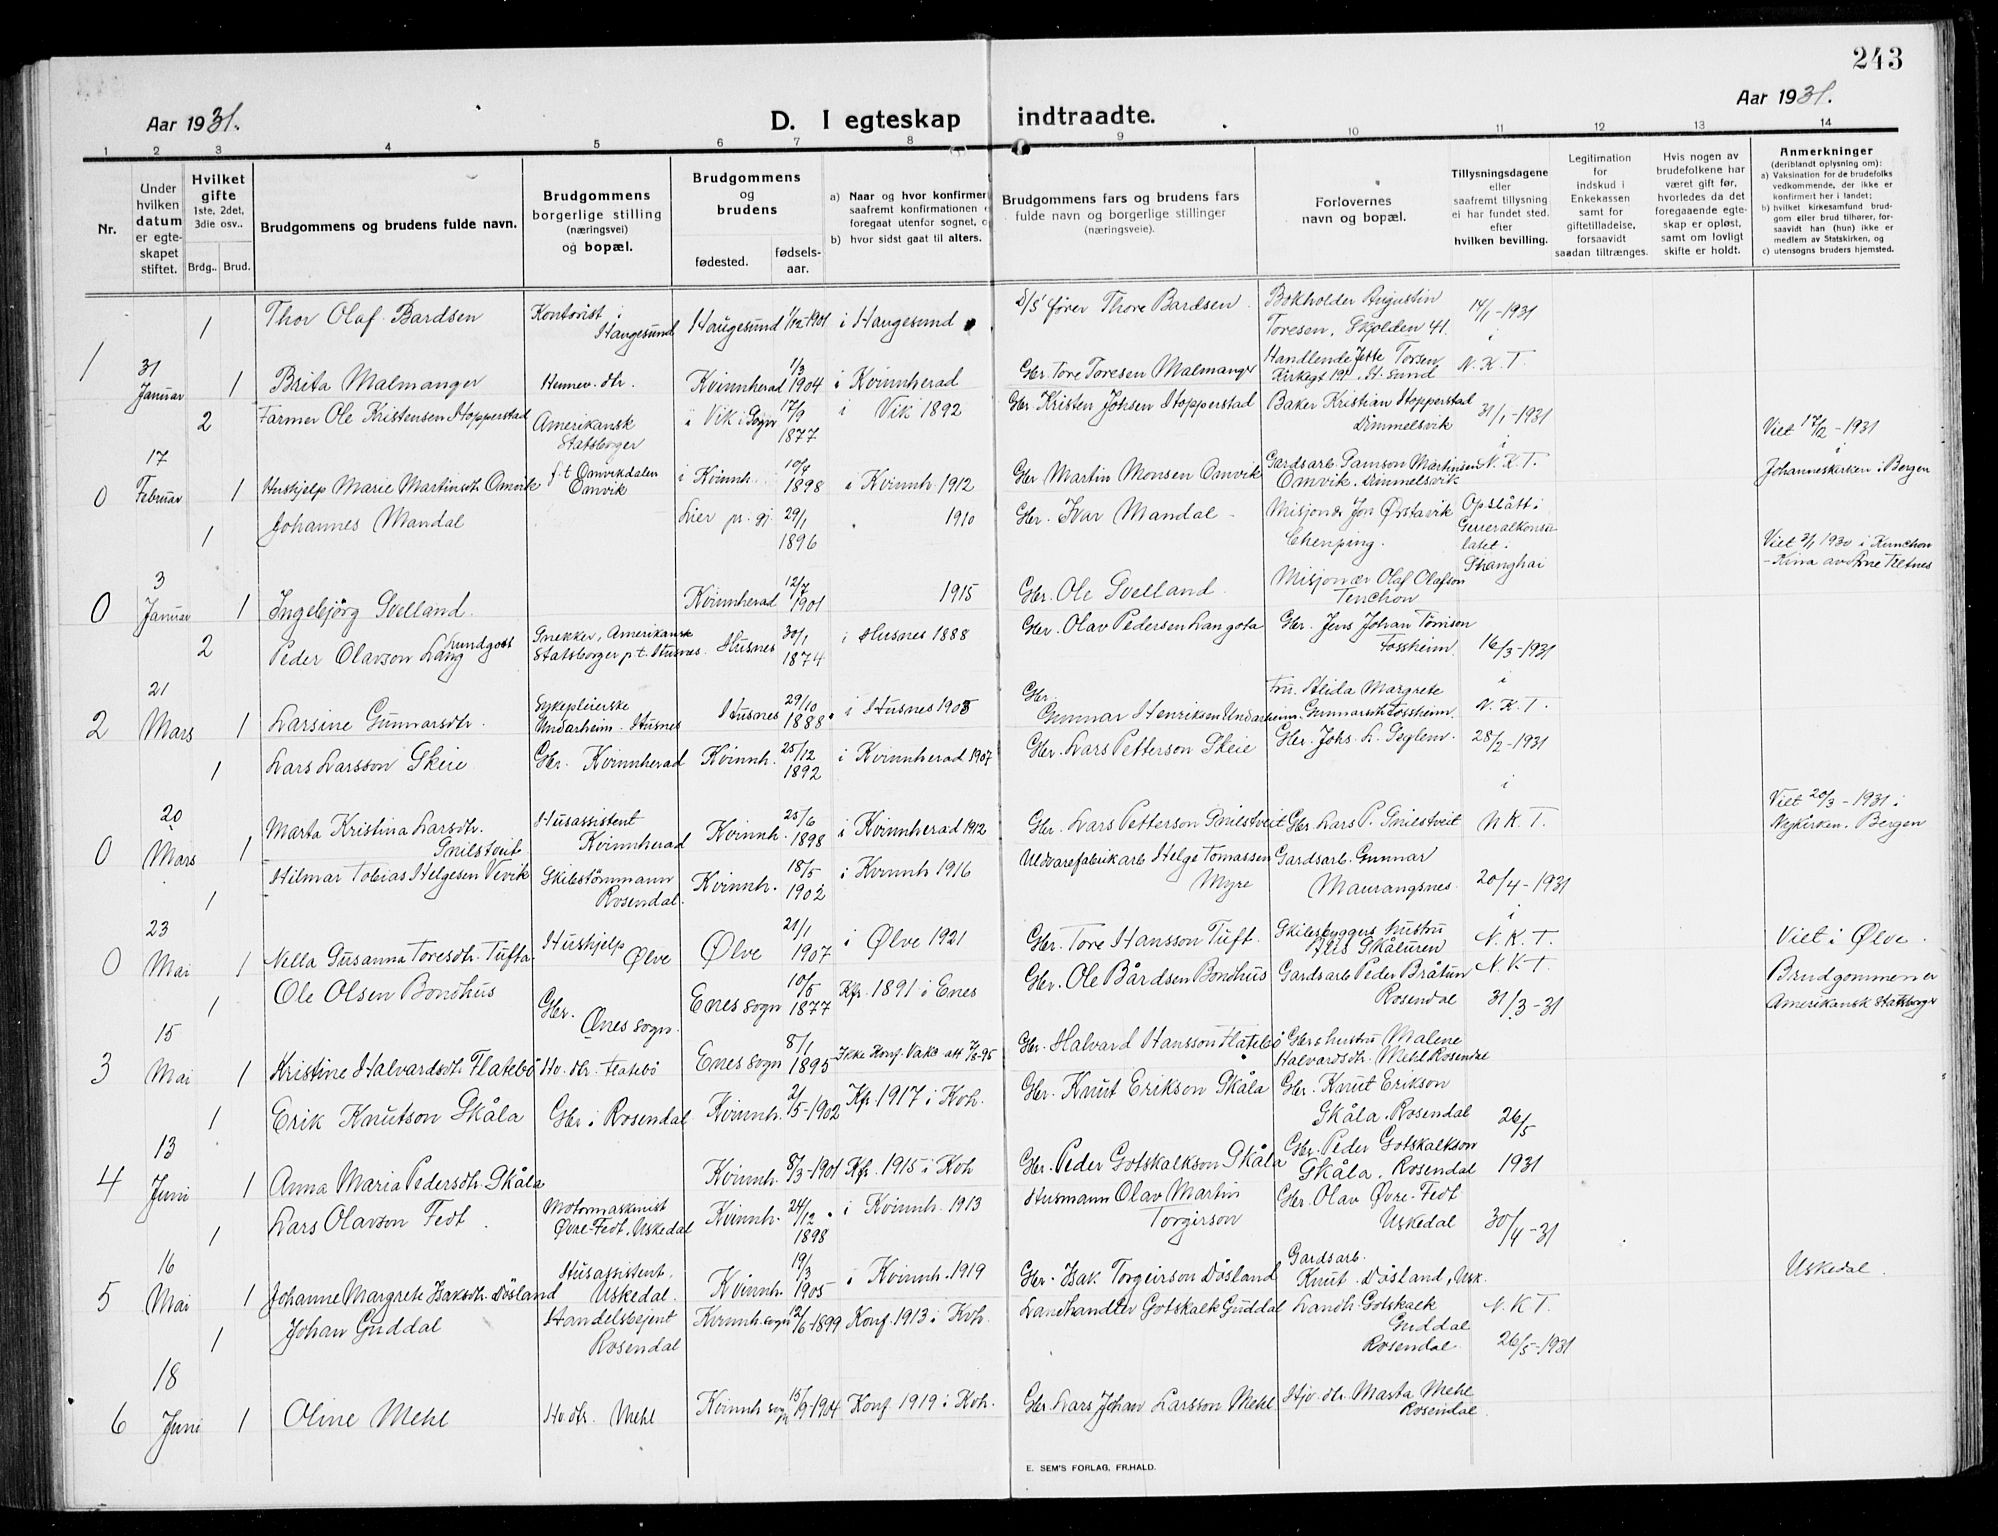 243
Aar 1931.
D. I egteskap indtraadte.
Aar 1931.
1 2 3 4 5 6 7 8 9 10 11 12 13 14
Nr.
Under hvilken datum er egteskapet stiftet.
Hvilket gifte 1ste, 2det, 3die osv..
Brdg.. Brud.
Brudgommens og brudens fulde navn.
Brudgommens borgerlige stilling (næringsvei) og bopæl.
Brudgommens og brudens
fødested. fødselsaar.
a) Naar og hvor konfirmer
saafremt konfirmationen e
foregaat utenfor sognet, o
b) hvor sidst gaat til alters.
Brudgommens fars og brudens fars
fulde navn og borgerlige stillinger
(næringsveie).
Forlovernes
navn og bopæl.
Tillysningsdagene
eller
saafremt tillysning
ei har fundet sted.
efter
hvilken bevilling.
Legitimation
for
indskud i
Enkekassen
samt for
giftetilladelse,
forsaavidt
saadan tiltrænges.
Hvis nogen av
brudefolkene har
været gift før,
hvorledes da det
foregaaende egteskap er opløst,
samt om lovligt
skifte er holdt.
Anmerkninger
(deriblandt oplysning om):
a) Vaksination for de brudefolks
vedkommende, der ikke er
konfirmert her i landet;
b) hvilket kirkesamfund brudgom eller brud tilhører, forsaavidt han (hun) ikke er
medlem av Statskirken, og
c) utensogns bruders hjemsted.
1 Thor Olaf Bardsen Kontorist i Haugesund Haugesund 1/12-1901 i Haugesund D/S fører Thore Bardsen Bokholder Augustin Toresen, Skjolden 41. 14/1-1931
1 31 Januar 1 Brita Malmanger Hennev. dtr. Kvinnherad 1/3 1904 i Kvinnherad Gbr. Tore Toresen Malmanger Handlende Jette Torsen Kirkegt 191. H.sund i N. K. T.
2 Farmer Ole Kristensen Hopperstad Amerikansk Statsborger i Vik i Sogn 17/9 1877 i Vik 1892 Gbr. Kristen Johsen Hopperstad Baker Kristian Hopperstad Dimmelsvik 31/1-1931 Viet 17/2-1931
0 17 Februar 1 Huskjelp Marie Martinsdtr. Omvik f. t. Omvikdalen Omvik i Kvinnh. 10/4 1898 i Kvinnh 1912 Gbr Martin Monsen Omvik Gardsarb. Samson Martinsen Omvik. Dimmelsvik i N. K. T. i Johanneskirken i Bergen
1 Johannes Mandal Lier pr. gj. 29/1 1896 1910 Gbr. Ivar Mandal Misjonær Jon Ørstavik Chenping. Opslått i Generalkonsulatet i Shanghai Viet 3/1 1930 i Tenchon - Kina av Arne Tiltnes
0 3 Januar 1 Ingebjörg Svelland. Kvinnherad 12/7 1901 1915 Gbr. Ole Svelland. Misjonær Olaf Olafson Tenchon
2 Peder Olavson Lang Lundgoss Snekker, Amerikansk Statsborger p.t. Husnes. Husnes 30/1 1874 i Husnes 1888 Gbr. Olav Pedersen Langota Gbr. Jens Johan Tönnsen Fossheim. 16/3-1931
2 21 Mars 1 Larsine Gunnarsdtr. Sykepleierske Undarheim. Husnes Husnes 29/10 1888. i Husnes 1905 Gbr. Gunnar Henriksen Undarheim. Fru. Alida Margrete Gunnarsdtr Fossheim. i N. K. T.
1 Lars Larsson Skeie Gbr. Kvinnherad Kvinnh. 25/12 1892 i Kvinnherad 1907 Gbr. Lars Petterson Skeie Gbr. Johs. L. Seglem. 28/2-1931
0 20 Mars 1 Marta Kristina Larsdtr. Snilstveit Husassistent Kvinnherad Kvinnh. 25/6 1898 i Kvinnherad 1912 Gbr. Lars Petterson Snilstveit Gbr. Lars P. Snilstveit i N K T. Viet 20/3-1931 i Nykirken. Bergen
1 Hilmar Tobias Helgesen Vevik Skibstömmann Rosendal. Kvinnh. 18/5 1902 i Kvinnh 1916 Uldvarefabrikarb Helge Tomassen Myre Gardsarb. Gunnar Maurangsnes. 20/4-1931
0 23 Mai 1 Nella Susanna Toresdtr. Tufta. Huskjelp Ølve Ølve 21/1 1907 i Ølve 1921 Gbr. Tore Hansson Tuft. Skibsbyggers hustru Alis Skåluren i N. K. T. Viet i Ølve.
1 Ole Olsen Bondhus Gbr. Ænes sogn. Enes sogn 10/5 1877 Kfr. 1891 i Enes Gbr. Ole Bårdsen Bondhus Gardsarb. Peder Bråtun Rosendal N. K. T. 31/3-31 Brudgommen er Amerikansk Statsborger
3 15 Mai 1 Kristine Halvardsdtr. Flatebö Hv. dtr. Flatebö Enes sogn 8/1 1895 Ikke Konf. Vaks att 7/8-95 Gbr. Halvard Hansson Flatebö Gbr's hustru Malene Halvardsdtr. Mehl Rosendal
1 Erik Knutson Skåla Gbr. i Rosendal Kvinnh. 2/5-1902 Kfr. 1917 i Kvh. Gbr. Knut Erikson Skåla Gbr. Knut Erikson Skåla. Rosendal 26/5
4 13 Juni 1 Anna Maria Pedersdtr. Skåla Kvinnh. 8/3-1901 Kfr. 1915 i Kvh Gbr. Peder Gotskalkson Skåla Gbr. Peder Gotskalkson Skåla. Rosendal 1931
1 Lars Olavson Fedt. Motormaskinist Øvre-Fedt, Uskedal Kvinnh. 24/12 1898 i Kvinnh. 1913 Husmann Olav Martin Torgirson Gbr. Olav Øvre-Fedt Uskedal 30/4-31
5 16 Mai 1 Johanne Margrete Isaksdtr. Dösland Husassistent. Uskedal. Kvinnh. 19/3 1905 i Kvinnh. 1919 Gbr. Isak Torgeirson Dösland Gardsarb. Knut Dösland, Usk. Uskedal.
1 Johan Guddal Handelsbejent Rosendal Kvinnh. sogn 12/6-1899 Konf. 1913 i Kvh. Landhandler Gotskalk Guddal Landh. Gotskalk Guddal Rosendal. N. K. T. 26/5-1931
6 18 Juni 1 Oline Mehl Hv dtr. Mehl Kvinnh sogn 15/9-1904 Konf 1919 i Kvh. Gbr. Lars Johan Larsson Mehl Hjv. dtr. Marta Mehl Rosendal.
E. SEM'S FORLAG, FR.HALD.